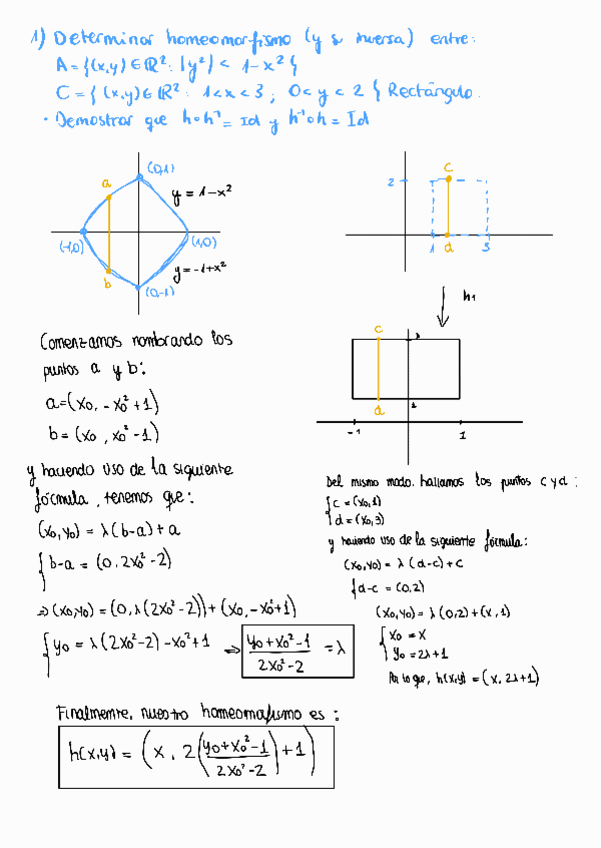 1) Determinar homeomorfismo (y su inversa) entre:
A = {(x,y) ∈ ℝ² : |y²| < 1-x² }
C = { (x,y) ∈ ℝ² : 1<x<3 ; 0<y<2 } Rectángulo.
· Demostrar que h∘h⁻¹ = Id y h⁻¹∘h = Id
(0,1)
a
y = 1-x²
(-1,0)
(1,0)
b
y = -1+x²
(0,-1)
c
2
1
d
3
h₁
c
3
d
1
-1
1
Comenzamos nombrando los
puntos a y b:
a=(x₀, -x₀²+1)
b = (x₀, x₀²-1)
y haciendo uso de la siguiente
fórmula, tenemos que:
(x₀,y₀) = λ(b-a)+a
{ b-a = (0, 2x₀²-2)
⇒ (x₀,y₀) = (0, λ(2x₀²-2)) + (x₀, -x₀²+1)
{ y₀ = λ(2x₀²-2) -x₀²+1 ⇒ (y₀+x₀²-1)/(2x₀²-2) = λ
Del mismo modo, hallamos los puntos c y d:
{ c = (x₀,1)
d = (x₀,3)
y haciendo uso de la siguiente fórmula:
(x₀,y₀) = λ(d-c)+c
{ d-c = (0,2)
(x₀,y₀) = λ(0,2)+(x,1)
{ x₀ = x
y₀ = 2λ+1
Por lo que, h(x,y) = (x, 2λ+1)
Finalmente, nuestro homeomorfismo es:
h(x,y) = (x, 2((y₀+x₀²-1)/(2x₀²-2))+1)